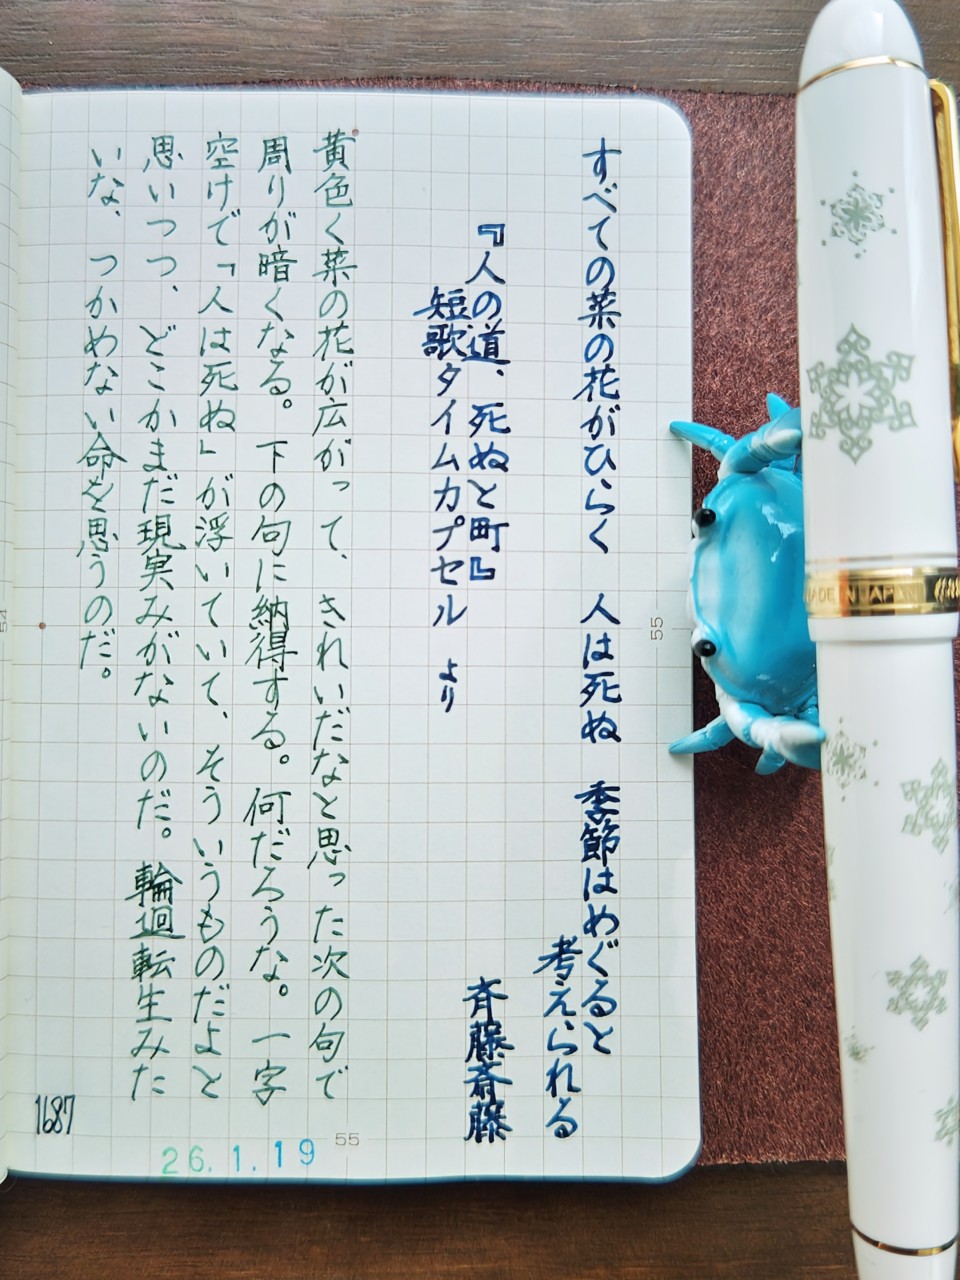 すべての菜の花がひらく　人は死ぬ　季節はめぐると
考えられる
『人の道、死ぬと町』
短歌タイムカプセル　より
斉藤斎藤
黄色く菜の花が広がって、きれいだなと思った次の句で
周りが暗くなる。下の句に納得する。何だろうな。一字
空けで「人は死ぬ」が浮いていて、そういうものだよと
思いつつ、どこかまだ現実みがないのだ。輪廻転生みた
いな、つかめない命を思うのだ。
1687
26.1.19
55
55
54
MADE IN JAPAN